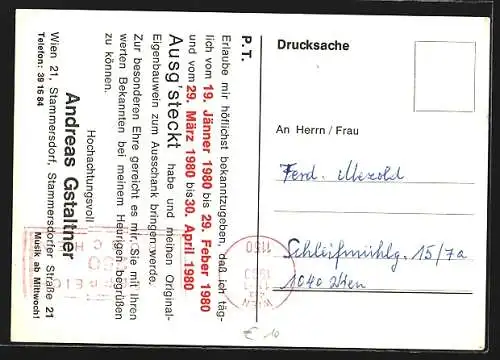 P. T.
Erlaube mir höflichst bekanntzugeben, daß ich täg-
lich vom 19. Jänner 1980 bis 29. Feber 1980
und vom 29. März 1980 bis 30. April 1980
Ausg'steckt habe und meinen Original-
Eigenbauwein zum Ausschank bringen werde.
Zur besonderen Ehre gereicht es mir, Sie mit Ihren
werten Bekannten bei meinem Heurigen begrüßen
zu können.
Hochachtungsvoll
Andreas Gstaltner
Wien 21, Stammersdorf, Stammersdorfer Straße 21
Telefon: 39 16 84
Musik ab Mittwoch!
Drucksache
An Herrn / Frau
Ferd.
Schleifmühlg. 15/7a
1040 Wien
1150
WIEN
€ 10